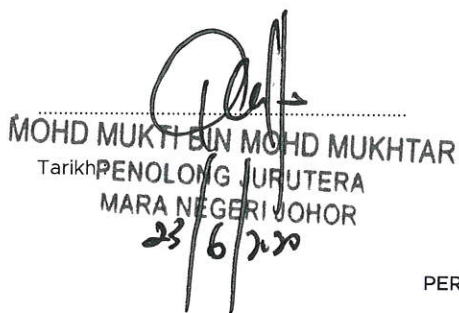 MOHD MUKTI BIN MOHD MUKHTAR
Tarikh: PENOLONG JURUTERA
MARA NEGERI JOHOR
23/6/2020
PER